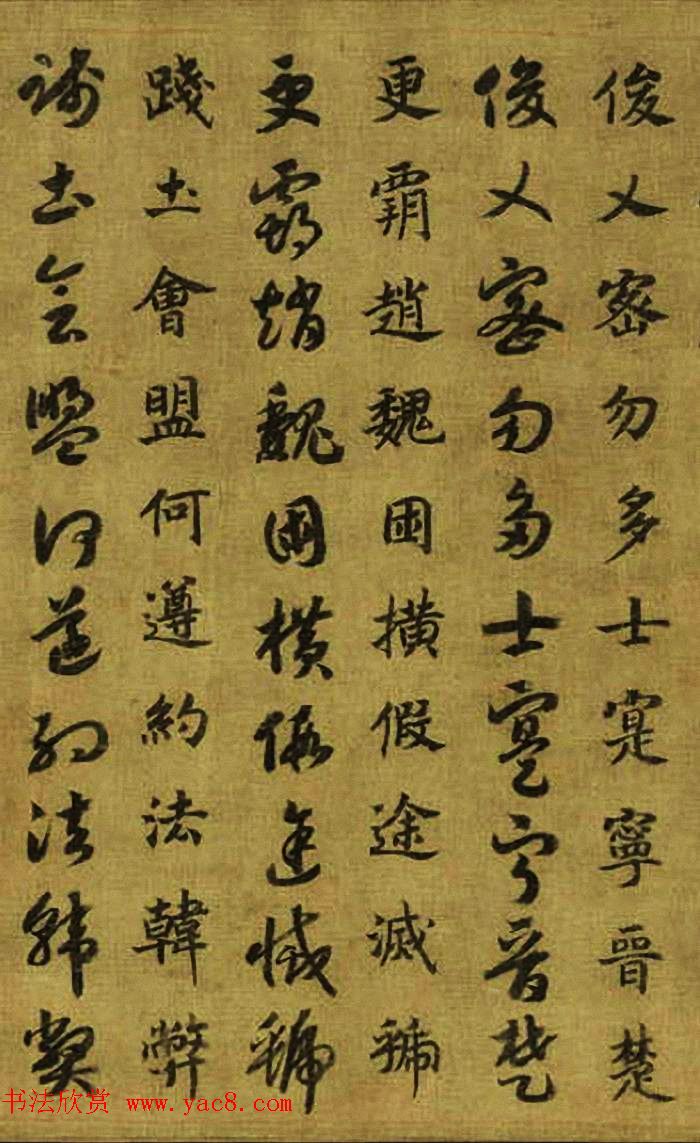 俊乂密勿多士寔寧晉楚
俊乂密勿多士寔寧晉楚
更霸趙魏困橫假途滅虢
更霸趙魏困橫假途滅虢
踐土會盟何遵約法韓弊
踐土會盟何遵約法韓弊
书法欣赏 www.yac8.com